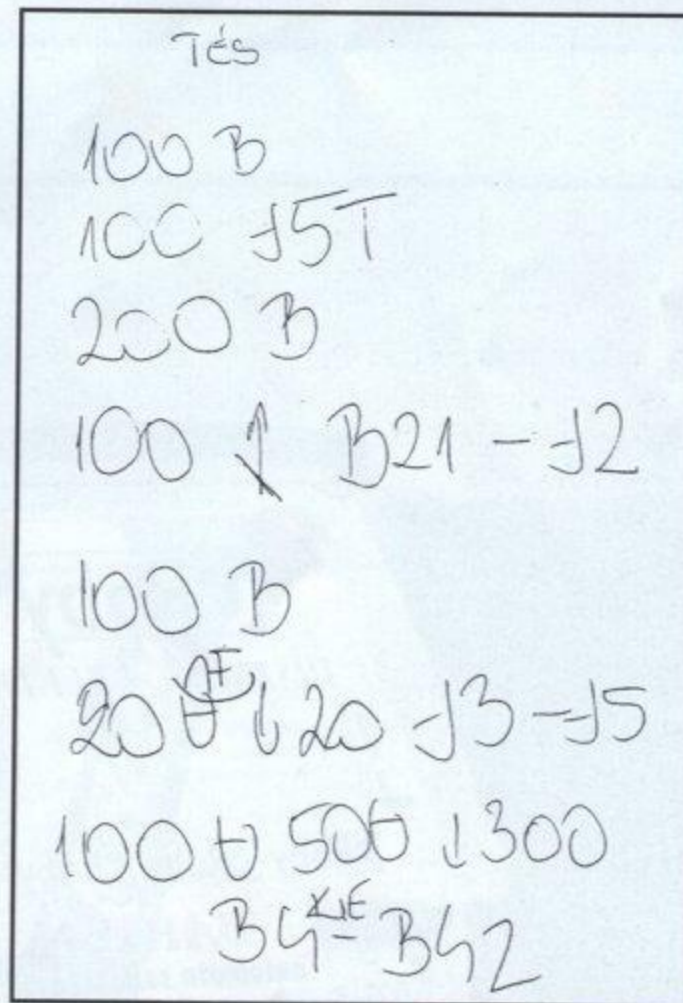 TéS
100 B
100 J5T
200 B
100 ↑ B21 - J2
100 B
20 ↓ 20 J3 - J5
100 500 ↓ 300
B4 - B42